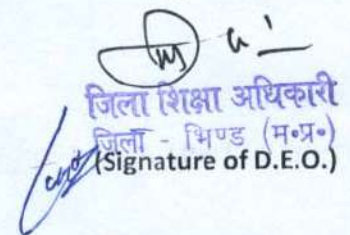 जिला शिक्षा अधिकारी
जिला - भिण्ड (म॰प्र॰)
(Signature of D.E.O.)